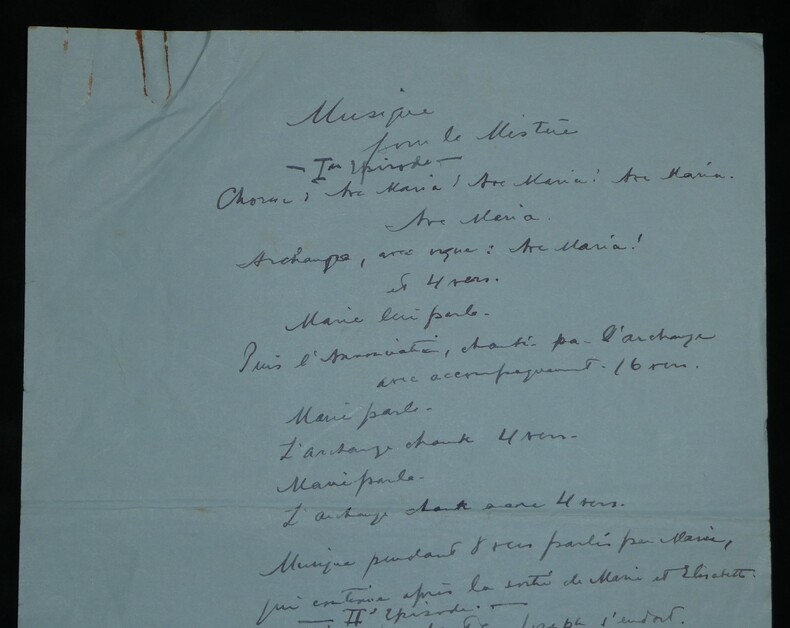 Musique
pour le Mistère
— Ier Episode —
Choeur : Ave Maria ! Ave Maria ! Ave Maria.
Ave Maria.
Archange, avec orgue : Ave Maria !
et 4 vers.
Marie lui parle.
Puis l'Annonciation, chantée par l'archange
avec accompagnement. 16 vers.
Marie parle.
L'archange chante 4 vers.
Marie parle.
L'archange chante encore 4 vers.
Musique pendant 8 vers parlés par Marie,
qui continue après la sortie de Marie et Elisabeth.
— IIe Episode. —
Joseph s'endort.